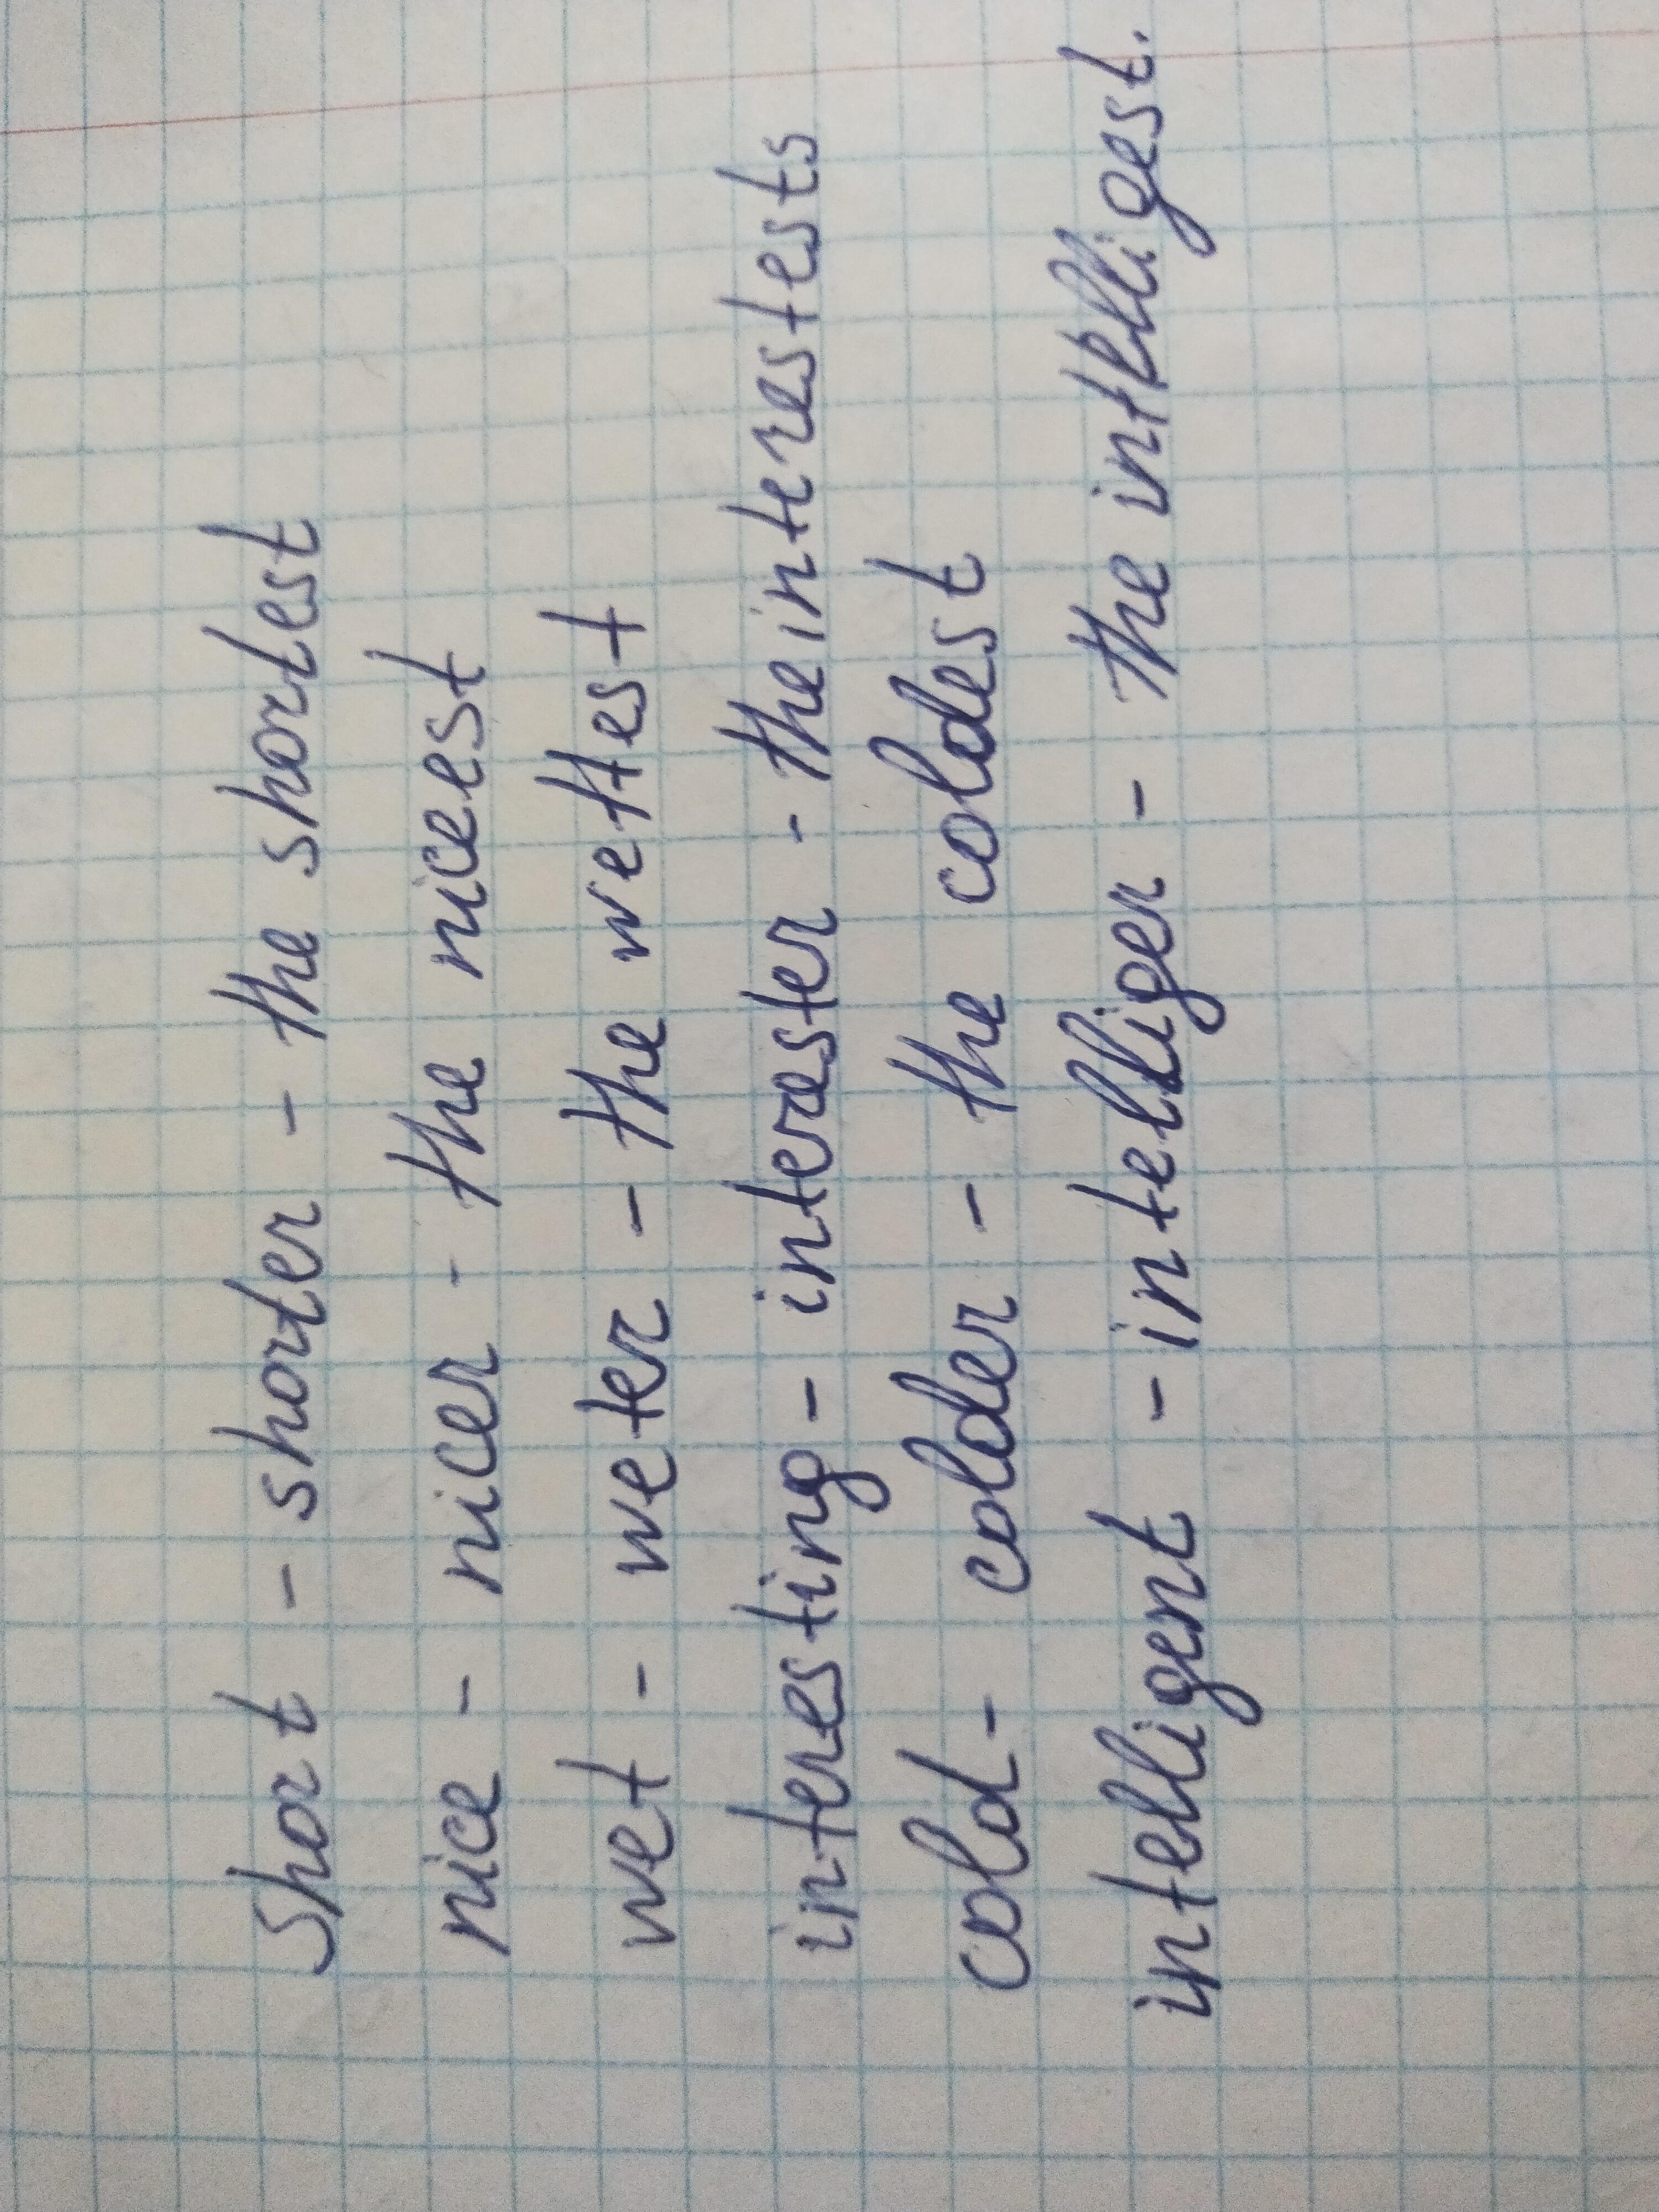 short - shorter - the shortest
nice - nicer - the nicest
wet - weter - the wettest
interesting - interester - the interestests
cold - colder - the coldest
intelligent - intelliger - the intelligest.